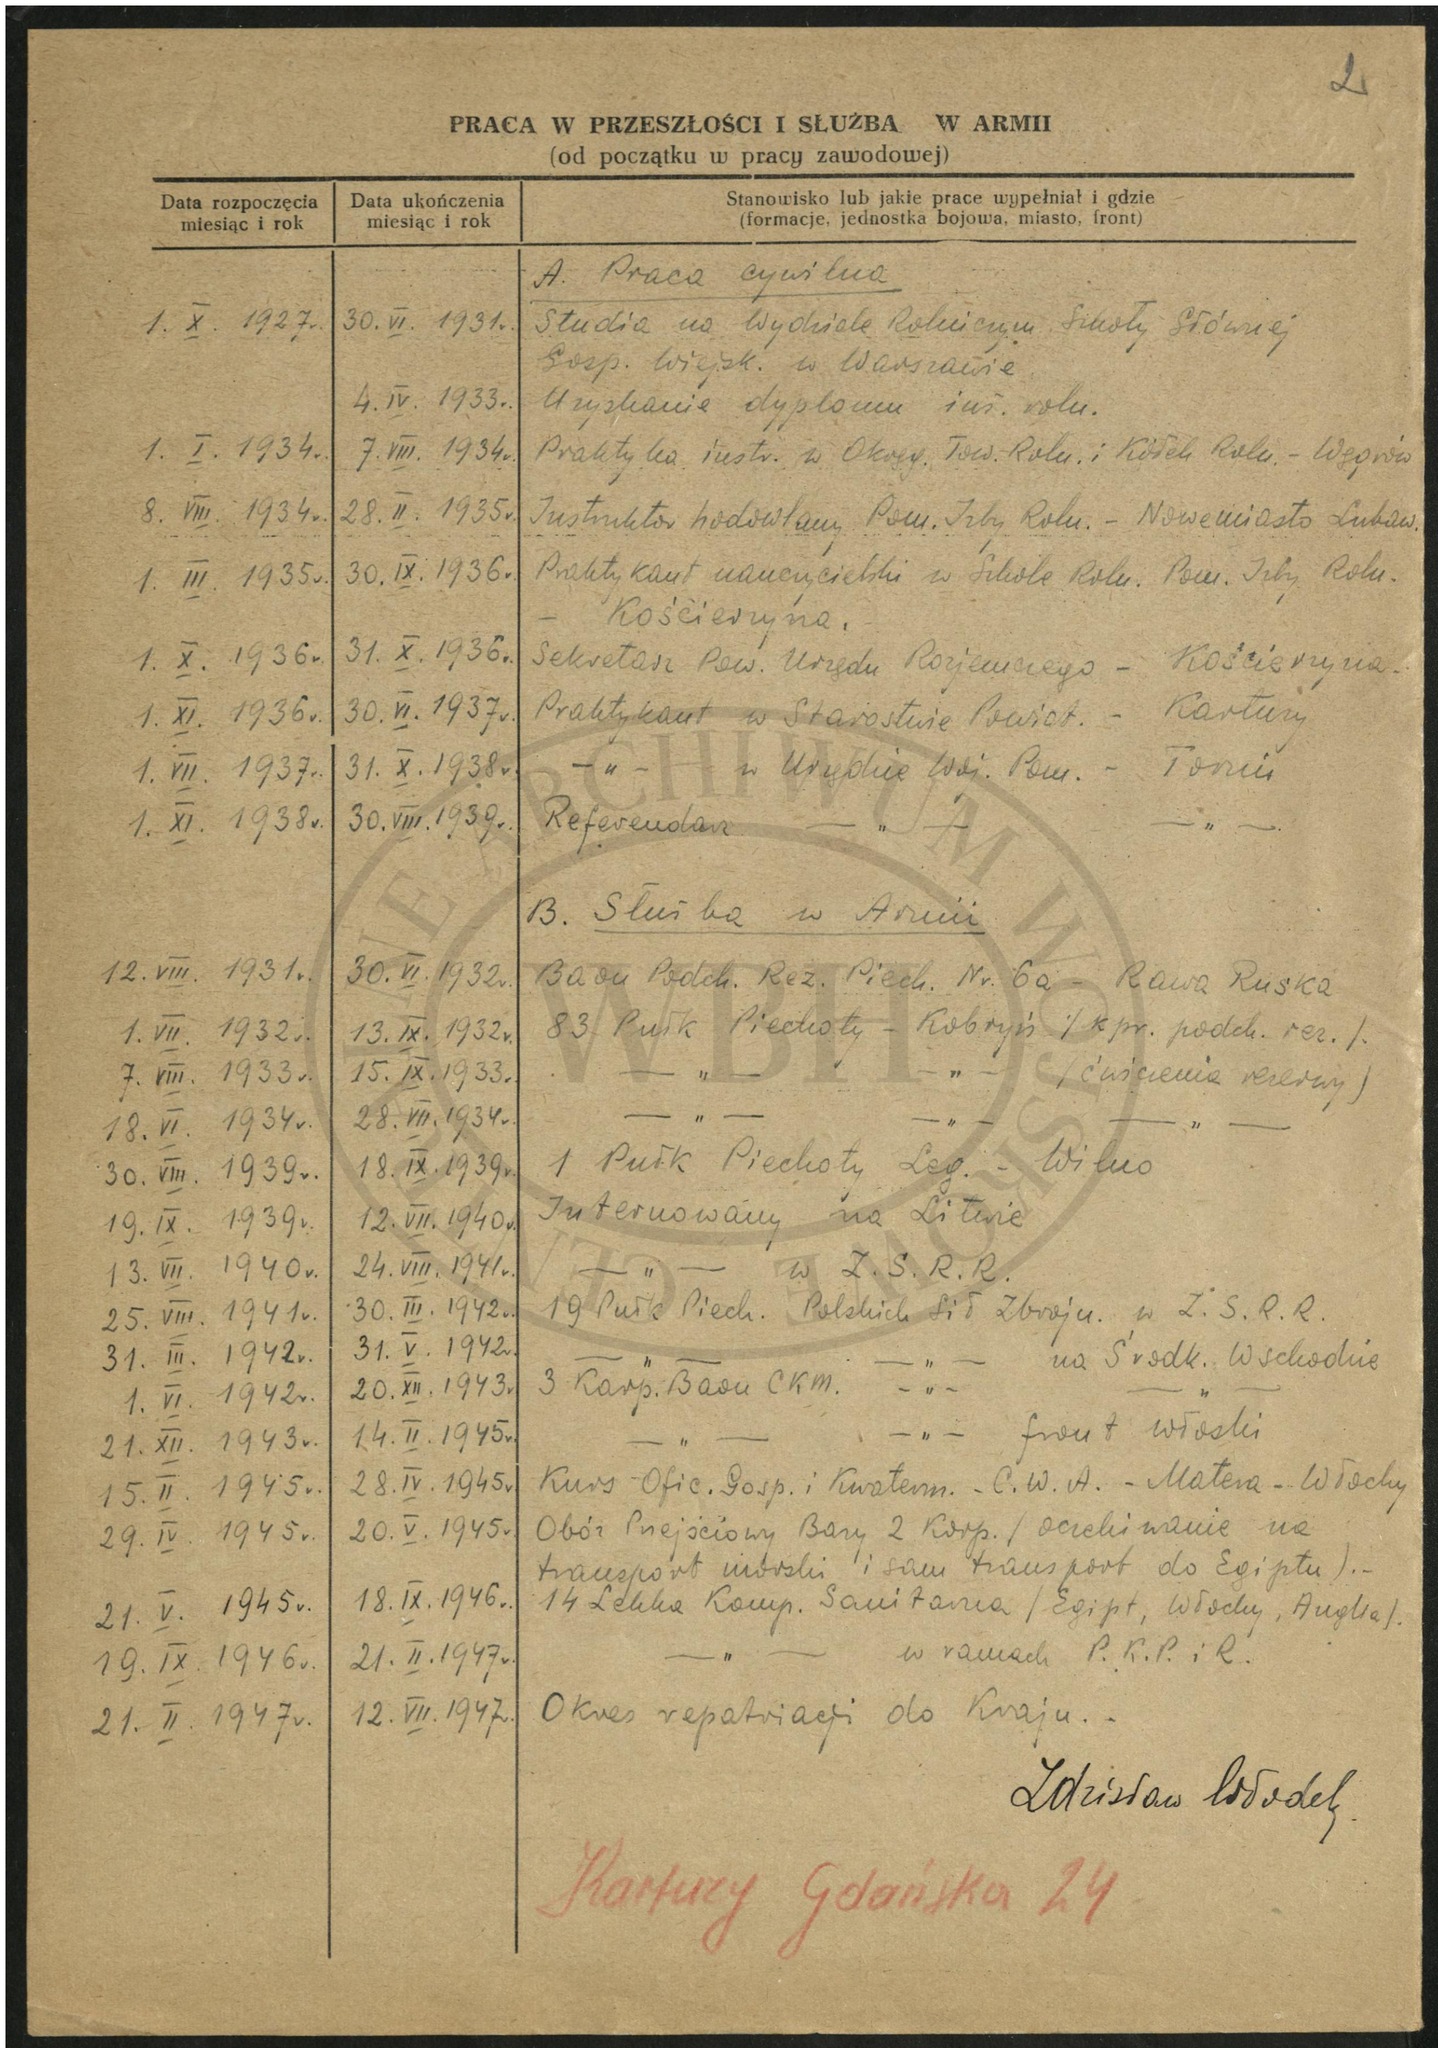 2
PRACA W PRZESZŁOŚCI I SŁUŻBA W ARMII
(od początku w pracy zawodowej)
Data rozpoczęcia miesiąc i rok | Data ukończenia miesiąc i rok | Stanowisko lub jakie prace wypełniał i gdzie (formacje, jednostka bojowa, miasto, front)
A. Praca cywilna
1. X. 1927r. 30. VI. 1931r. Studia na Wydziale Rolniczym Szkoły Głównej
Gosp. Wiejsk. w Warszawie
4. IV. 1933r. Uzyskanie dyplomu inż. roln.
1. I. 1934r. 7. VIII. 1934r. Praktyka instr. w Okręg. Tow. Roln. i Kółek Roln. - Węgrów
8. VIII. 1934r. 28. II. 1935r. Instruktor hodowlany Pom. Izby Roln. - Nowemiasto Lubaw.
1. III. 1935r. 30. IX. 1936r. Praktykant nauczycielski w Szkole Roln. Pom. Izby Roln.
- Kościerzyna.
1. X. 1936r. 31. X. 1936r. Sekretarz Pow. Urzędu Rozjemczego - Kościerzyna.
1. XI. 1936r. 30. VI. 1937r. Praktykant w Starostwie Powiat. - Kartuzy
1. VII. 1937r. 31. X. 1938r. -"- w Urzędzie Woj. Pom. - Toruń
1. XI. 1938r. 30. VIII. 1939r. Referendarz -"- -"-.
B. Służba w Armii
12. VIII. 1931r. 30. VI. 1932r. Baon Podch. Rez. Piech. Nr. 6a - Rawa Ruska
1. VII. 1932r. 13. IX. 1932r. 83 Pułk Piechoty - Kobryń /kpr. podch. rez./.
7. VIII. 1933r. 15. IX. 1933r. -"- -"- /ćwiczenia rezerwy)
18. VI. 1934r. 28. VII. 1934r. -"- -"- -"-
30. VIII. 1939r. 18. IX. 1939r. 1 Pułk Piechoty Leg. - Wilno
19. IX. 1939r. 12. VII. 1940r. Internowany na Litwie
13. VII. 1940r. 24. VIII. 1941r. -"- w Z.S.R.R.
25. VIII. 1941r. 30. III. 1942r. 19 Pułk Piech. Polskich Sił Zbrojn. w Z.S.R.R.
31. III. 1942r. 31. V. 1942r. -"- -"- na Środk. Wschodzie
1. VI. 1942r. 20. XII. 1943r. 3 Karp. Baon CKM. -"- -"-
21. XII. 1943r. 14. II. 1945r. -"- -"- front włoski
15. II. 1945r. 28. IV. 1945r. Kurs Ofic. Gosp. i Kwaterm. - C.W.A. - Matera - Włochy
29. IV. 1945r. 20. V. 1945r. Obóz Przejściowy Bazy 2 Korp. / oczekiwanie na
transport morski i sam transport do Egiptu). -
21. V. 1945r. 18. IX. 1946r. 14 Lekka Komp. Sanitarna /Egipt, Włochy, Anglia/.
19. IX. 1946r. 21. II. 1947r. -"- w ramach P.K.P. i R.
21. II. 1947r. 12. VII. 1947r. Okres repatriacji do Kraju. -
Zdzisław Włodek
Kartuzy Gdańska 24
CENTRALNE ARCHIWUM WOJSKOWE
WBH